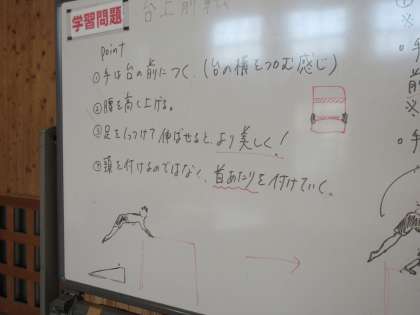 学習問題
台上前転
point
①手は台の前につく.(台の横をつかむ感じ)
②腰を高く上げる。
③足をくっつけて伸ばせると、より美しく!
④頭を付けるのではなく、首あたりを付けていく。
※
。手
前
※
。手